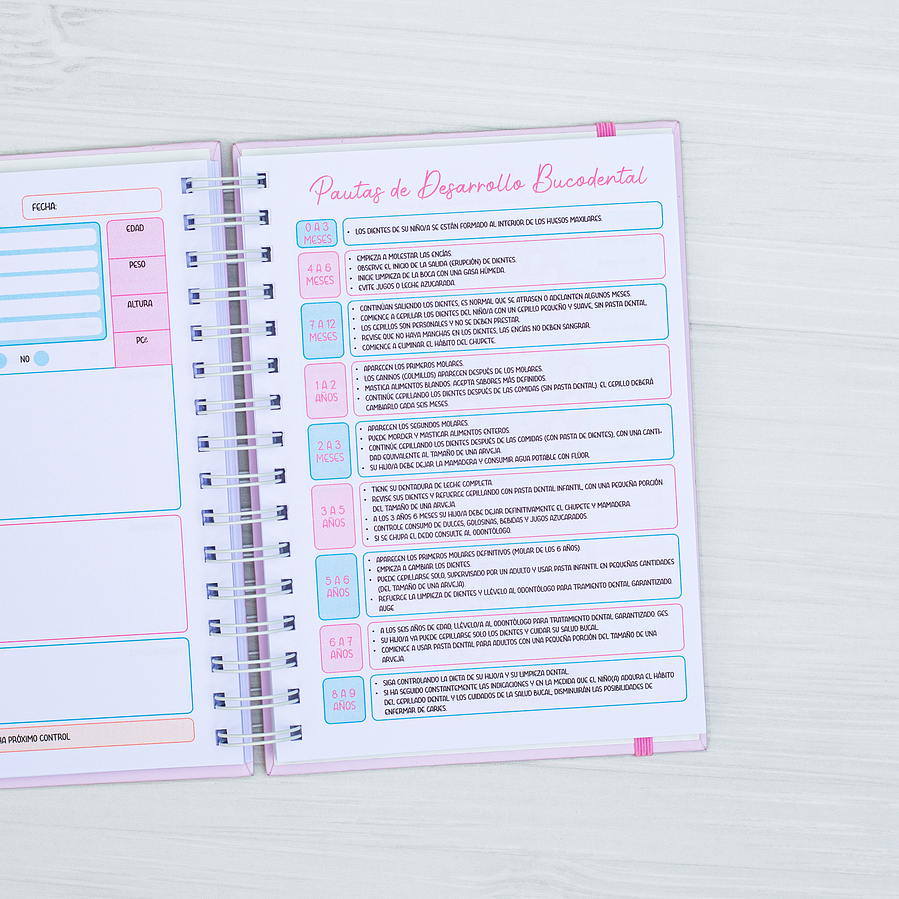 FECHA:
EDAD
PESO
ALTURA
PC:
NO
PRÓXIMO CONTROL
Pautas de Desarrollo Bucodental
0 A 3
MESES
• LOS DIENTES DE SU NIÑO/A SE ESTÁN FORMADO AL INTERIOR DE LOS HUESOS MAXILARES.
4 A 6
MESES
• EMPIEZA A MOLESTAR LAS ENCÍAS.
• OBSERVE EL INICIO DE LA SALIDA (ERUPCIÓN) DE DIENTES.
• INICIE LIMPIEZA DE LA BOCA CON UNA GASA HÚMEDA.
• EVITE JUGOS O LECHE AZUCARADA.
7 A 12
MESES
• CONTINÚAN SALIENDO LOS DIENTES, ES NORMAL QUE SE ATRASEN O ADELANTEN ALGUNOS MESES.
• COMIENCE A CEPILLAR LOS DIENTES DEL NIÑO/A CON UN CEPILLO PEQUEÑO Y SUAVE, SIN PASTA DENTAL.
• LOS CEPILLOS SON PERSONALES Y NO SE DEBEN PRESTAR.
• REVISE QUE NO HAYA MANCHAS EN LOS DIENTES, LAS ENCÍAS NO DEBEN SANGRAR.
• COMIENCE A ELIMINAR EL HÁBITO DEL CHUPETE.
1 A 2
AÑOS
• APARECEN LOS PRIMEROS MOLARES.
• LOS CANINOS (COLMILLOS) APARECEN DESPUÉS DE LOS MOLARES.
• MASTICA ALIMENTOS BLANDOS. ACEPTA SABORES MÁS DEFINIDOS.
• CONTINÚE CEPILLANDO LOS DIENTES DESPUÉS DE LAS COMIDAS (SIN PASTA DENTAL). EL CEPILLO DEBERÁ
CAMBIARLO CADA SEIS MESES.
2 A 3
MESES
• APARECEN LOS SEGUNDOS MOLARES.
• PUEDE MORDER Y MASTICAR ALIMENTOS ENTEROS.
• CONTINÚE CEPILLANDO LOS DIENTES DESPUÉS DE LAS COMIDAS (CON PASTA DE DIENTES), CON UNA CANTI-
DAD EQUIVALENTE AL TAMAÑO DE UNA ARVEJA.
• SU HIJO/A DEBE DEJAR LA MAMADERA Y CONSUMIR AGUA POTABLE CON FLÚOR.
3 A 5
AÑOS
• TIENE SU DENTADURA DE LECHE COMPLETA.
• REVISE SUS DIENTES Y REFUERCE CEPILLANDO CON PASTA DENTAL INFANTIL, CON UNA PEQUEÑA PORCIÓN
DEL TAMAÑO DE UNA ARVEJA.
• A LOS 3 AÑOS 6 MESES SU HIJO/A DEBE DEJAR DEFINITIVAMENTE EL CHUPETE Y MAMADERA.
• CONTROLE CONSUMO DE DULCES, GOLOSINAS, BEBIDAS Y JUGOS AZUCARADOS.
• SI SE CHUPA EL DEDO CONSULTE AL ODONTÓLOGO.
5 A 6
AÑOS
• APARECEN LOS PRIMEROS MOLARES DEFINITIVOS (MOLAR DE LOS 6 AÑOS).
• EMPIEZA A CAMBIAR LOS DIENTES.
• PUEDE CEPILLARSE SOLO, SUPERVISADO POR UN ADULTO Y USAR PASTA INFANTIL EN PEQUEÑAS CANTIDADES
(DEL TAMAÑO DE UNA ARVEJA).
• REFUERCE LA LIMPIEZA DE DIENTES Y LLÉVELO AL ODONTÓLOGO PARA TRAMIENTO DENTAL GARANTIZADO.
AUGE
6 A 7
AÑOS
• A LOS SEIS AÑOS DE EDAD, LLÉVELO/A AL ODONTÓLOGO PARA TRATAMIENTO DENTAL GARANTIZADO. GES.
• SU HIJO/A YA PUEDE CEPILLARSE SOLO LOS DIENTES Y CUIDAR SU SALUD BUCAL.
• COMIENCE A USAR PASTA DENTAL PARA ADULTOS CON UNA PEQUEÑA PORCIÓN DEL TAMAÑO DE UNA
ARVEJA.
8 A 9
AÑOS
• SIGA CONTROLANDO LA DIETA DE SU HIJO/A Y SU LIMPIEZA DENTAL.
• SI HA SEGUIDO CONSTANTEMENTE LAS INDICACIONES Y EN LA MEDIDA QUE EL NIÑO/A) ADQUIRA EL HÁBITO
DEL CEPILLADO DENTAL Y LOS CUIDADOS DE LA SALUD BUCAL, DISMINUIRÁN LAS POSIBILIDADES DE
ENFERMAR DE CARIES.